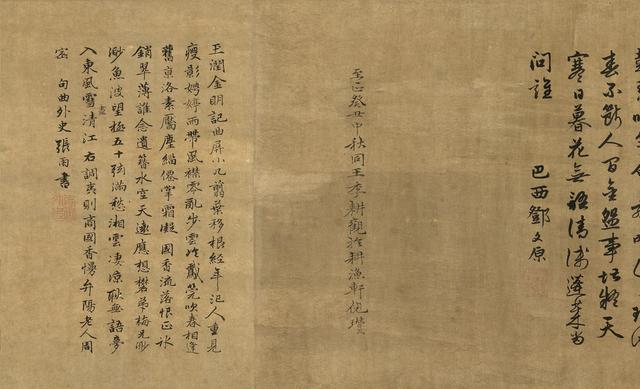 春不斷人間金盤事天
寒日暮花無語清淺蓬萊當
問誰 巴西鄧文原
至正癸丑中秋同王季耕觀於耕漁軒倪瓚
玉潤金明記曲屏小几翦葉移根經年汜人重見
瘦影娉婷雨帶風襟零亂步雲冷鵝筦吹春相逢
舊京洛素靨塵緇僊掌霜凝國香流落恨正冰
銷翠薄誰念遺簪水空天遠應想礬弟梅兄渺
渺魚波望極五十弦滿愁湘雲凄涼耿無語夢
入東風雪盡清江右調夷則商國香慢弁陽老人周
密 句曲外史張雨書